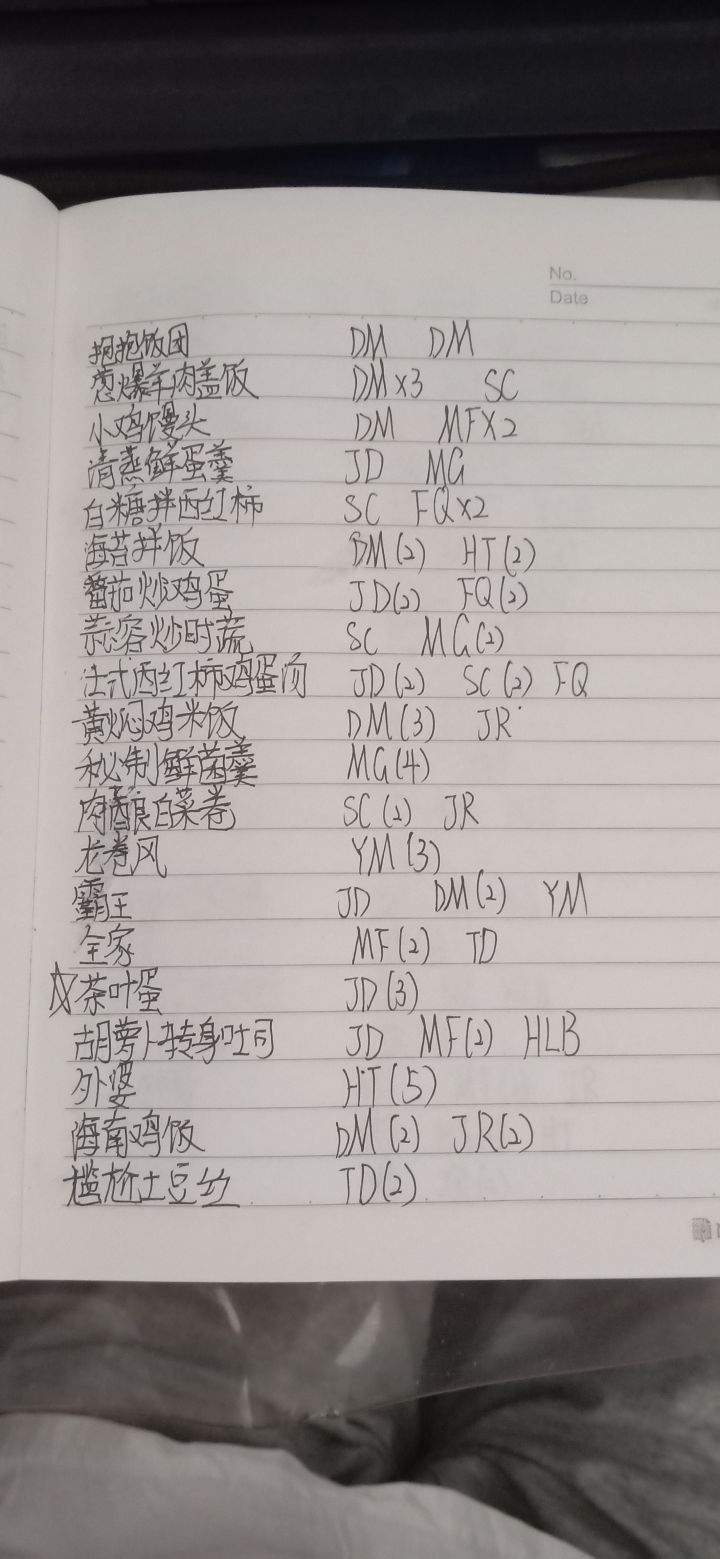 No.
Date
抱抱饭团 DM DM
葱爆羊肉盖饭 DM×3 SC
小鸡馒头 DM MF×2
清蒸鲜蛋羹 JD MG
白糖拌西红柿 SC FQ×2
海苔拌饭 DM(2) HT(2)
蕃茄炒鸡蛋 JD(2) FQ(2)
蒜容炒时蔬 SC MG(2)
法式西红柿鸡蛋汤 JD(2) SC(2) FQ
黄焖鸡米饭 DM(3) JR
秘制鲜菌羹 MG(4)
肉酿白菜卷 SC(2) JR
龙卷风 YM(3)
霸王 JD DM(2) YM
全家 MF(2) TD
☆茶叶蛋 JD(3)
胡萝卜转身吐司 JD MF(2) HLB
外婆 HT(5)
海南鸡饭 DM(2) JR(2)
尴尬土豆丝 TD(2)